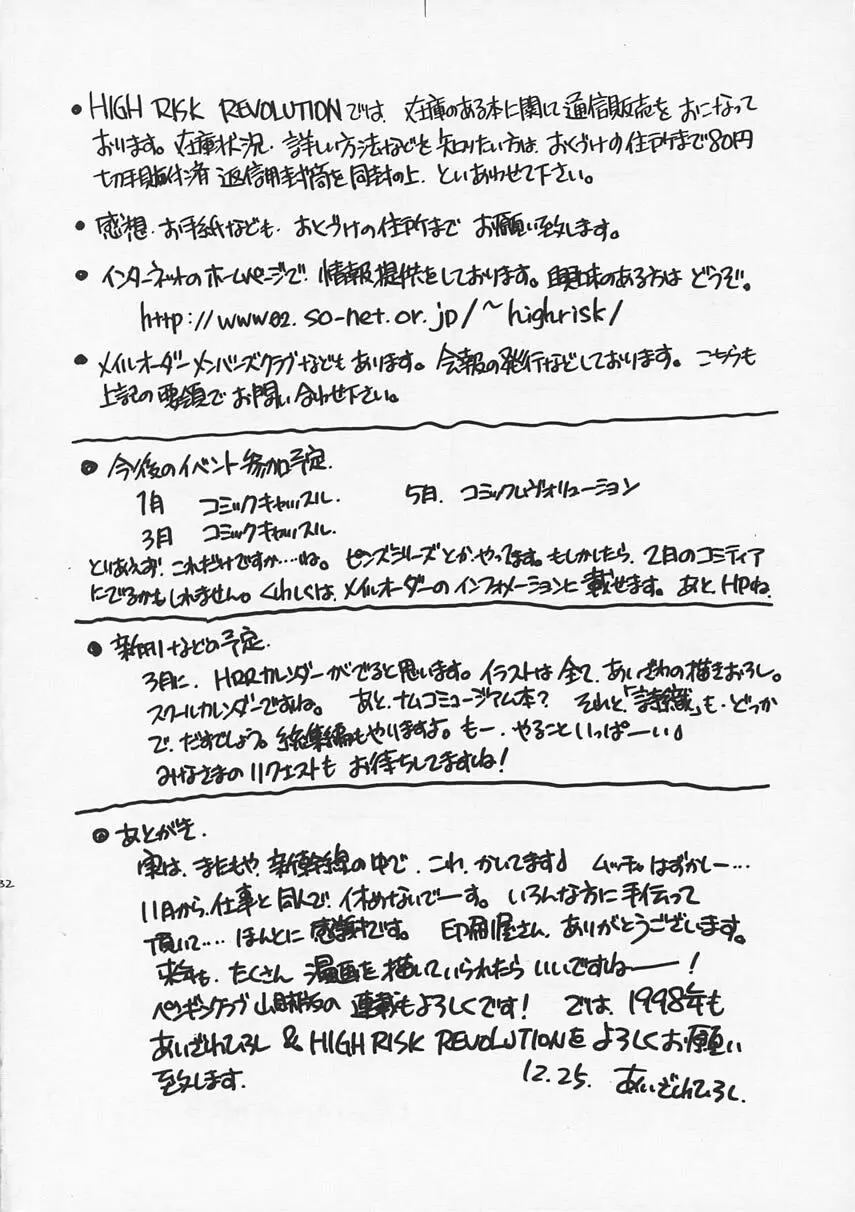 • HIGH RISK REVOLUTIONでは、在庫のある本に関して通信販売をおこなって
おります。在庫状況、詳しい方法などを知りたい方は、おくづけの住所まで80円
切手貼付済返信用封筒を同封の上、といあわせて下さい。
• 感想、お手紙なども、おくづけの住所までお願い致します。
• インターネットのホームページで情報提供をしております。興味のある方はどうぞ。
http://www02.so-net.or.jp/~highrisk/
• メイルオーダーメンバーズクラブなどもあります。会報の発行などしております。こちらも
上記の要領でお問い合わせ下さい。
• 今後のイベント参加予定.
1月 コミックキャッスル. 5月. コミックレヴォリューション
3月 コミックキャッスル.
とりあえず、これだけですか‥‥ね。ピンズシリーズとか、やってます。もしかしたら、2月のコミティア
にでるかもしれません。くわしくは、メイルオーダーのインフォメーションに載せます。あと、HPね.
• 新刊などの予定.
3月に、HRRカレンダーがでると思います。イラストは全て、あいざわの描きおろし。
スクールカレンダーですね。 あと、ナムコミュージアム本? それと「詩織」も、どっか
で、だすでしょう。総集編もやりますよ。もー、やることいっぱーい♪
みなさまのリクエストもお待ちしてますね!
• あとがき.
実は、またもや、新幹線の中で、これ、かいてます♪ ムッチャはずかしー‥‥
11月から、仕事と同人で、休めないでーす。いろんな方に手伝って
頂いて‥‥ほんとに感謝です。 印刷屋さん、ありがとうございます。
来年も、たくさん漫画を描いていられたらいいですねーー!
ペンギンクラブ山賊版の連載もよろしくです! では、1998年も
あいざわひろし & HIGH RISK REVOLUTIONをよろしくお願い
致します.
12.25. あいざわひろし.
32